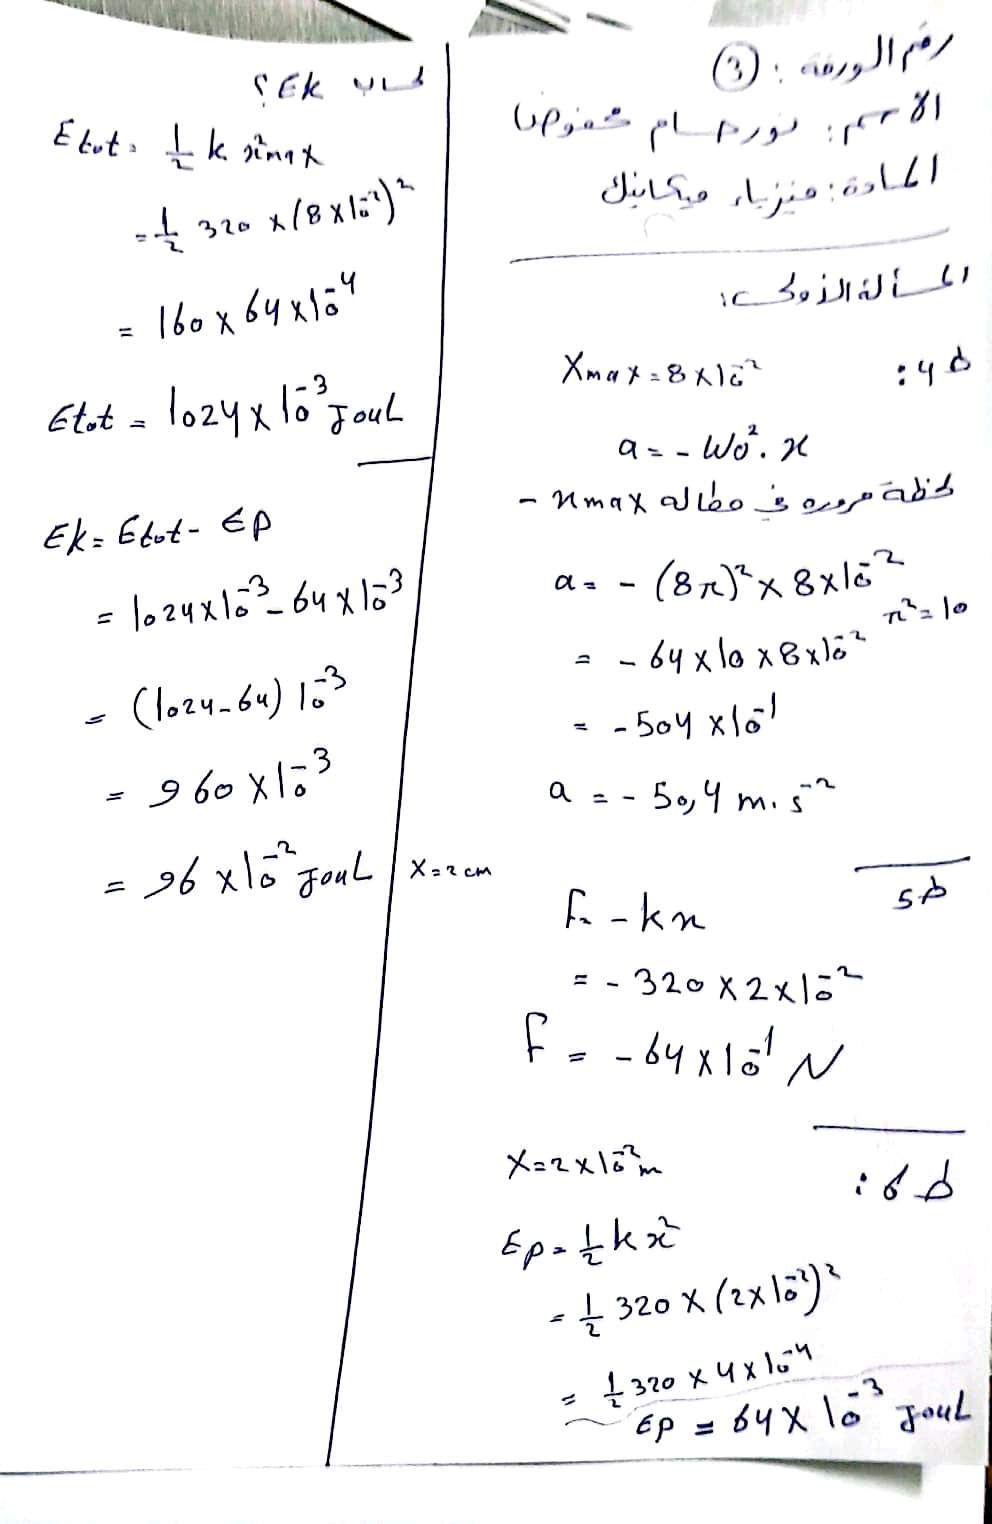 رقم الورقة: ③
الاسم: نور حسام
المادة: فيزياء ميكانيك
المسألة الأولى:
ط4:
Xmax = 8×10⁻²
a = - W₀². x
لحظة مروره في مطاله xmax -
a = - (8π)² × 8×10⁻²
π² = 10
= - 64 × 10 × 8×10⁻²
= - 504 × 10⁻¹
a = - 50,4 m.s⁻²
ط5
F = - kx
= - 320 × 2×10⁻²
F = - 64 × 10⁻¹ N
ط6:
X = 2×10⁻² m
Ep = 1/2 k x²
= 1/2 320 × (2×10⁻²)²
= 1/2 320 × 4 × 10⁻⁴
Ep = 64 × 10⁻³ Joul
حساب Ek ؟
Etot = 1/2 k x²max
= 1/2 320 × (8×10⁻²)²
= 160 × 64 × 10⁻⁴
Etot = 1024 × 10⁻³ Joul
Ek = Etot - Ep
= 1024×10⁻³ - 64×10⁻³
= (1024-64) 10⁻³
= 960 × 10⁻³
= 96 × 10⁻² Joul
X = 2 cm